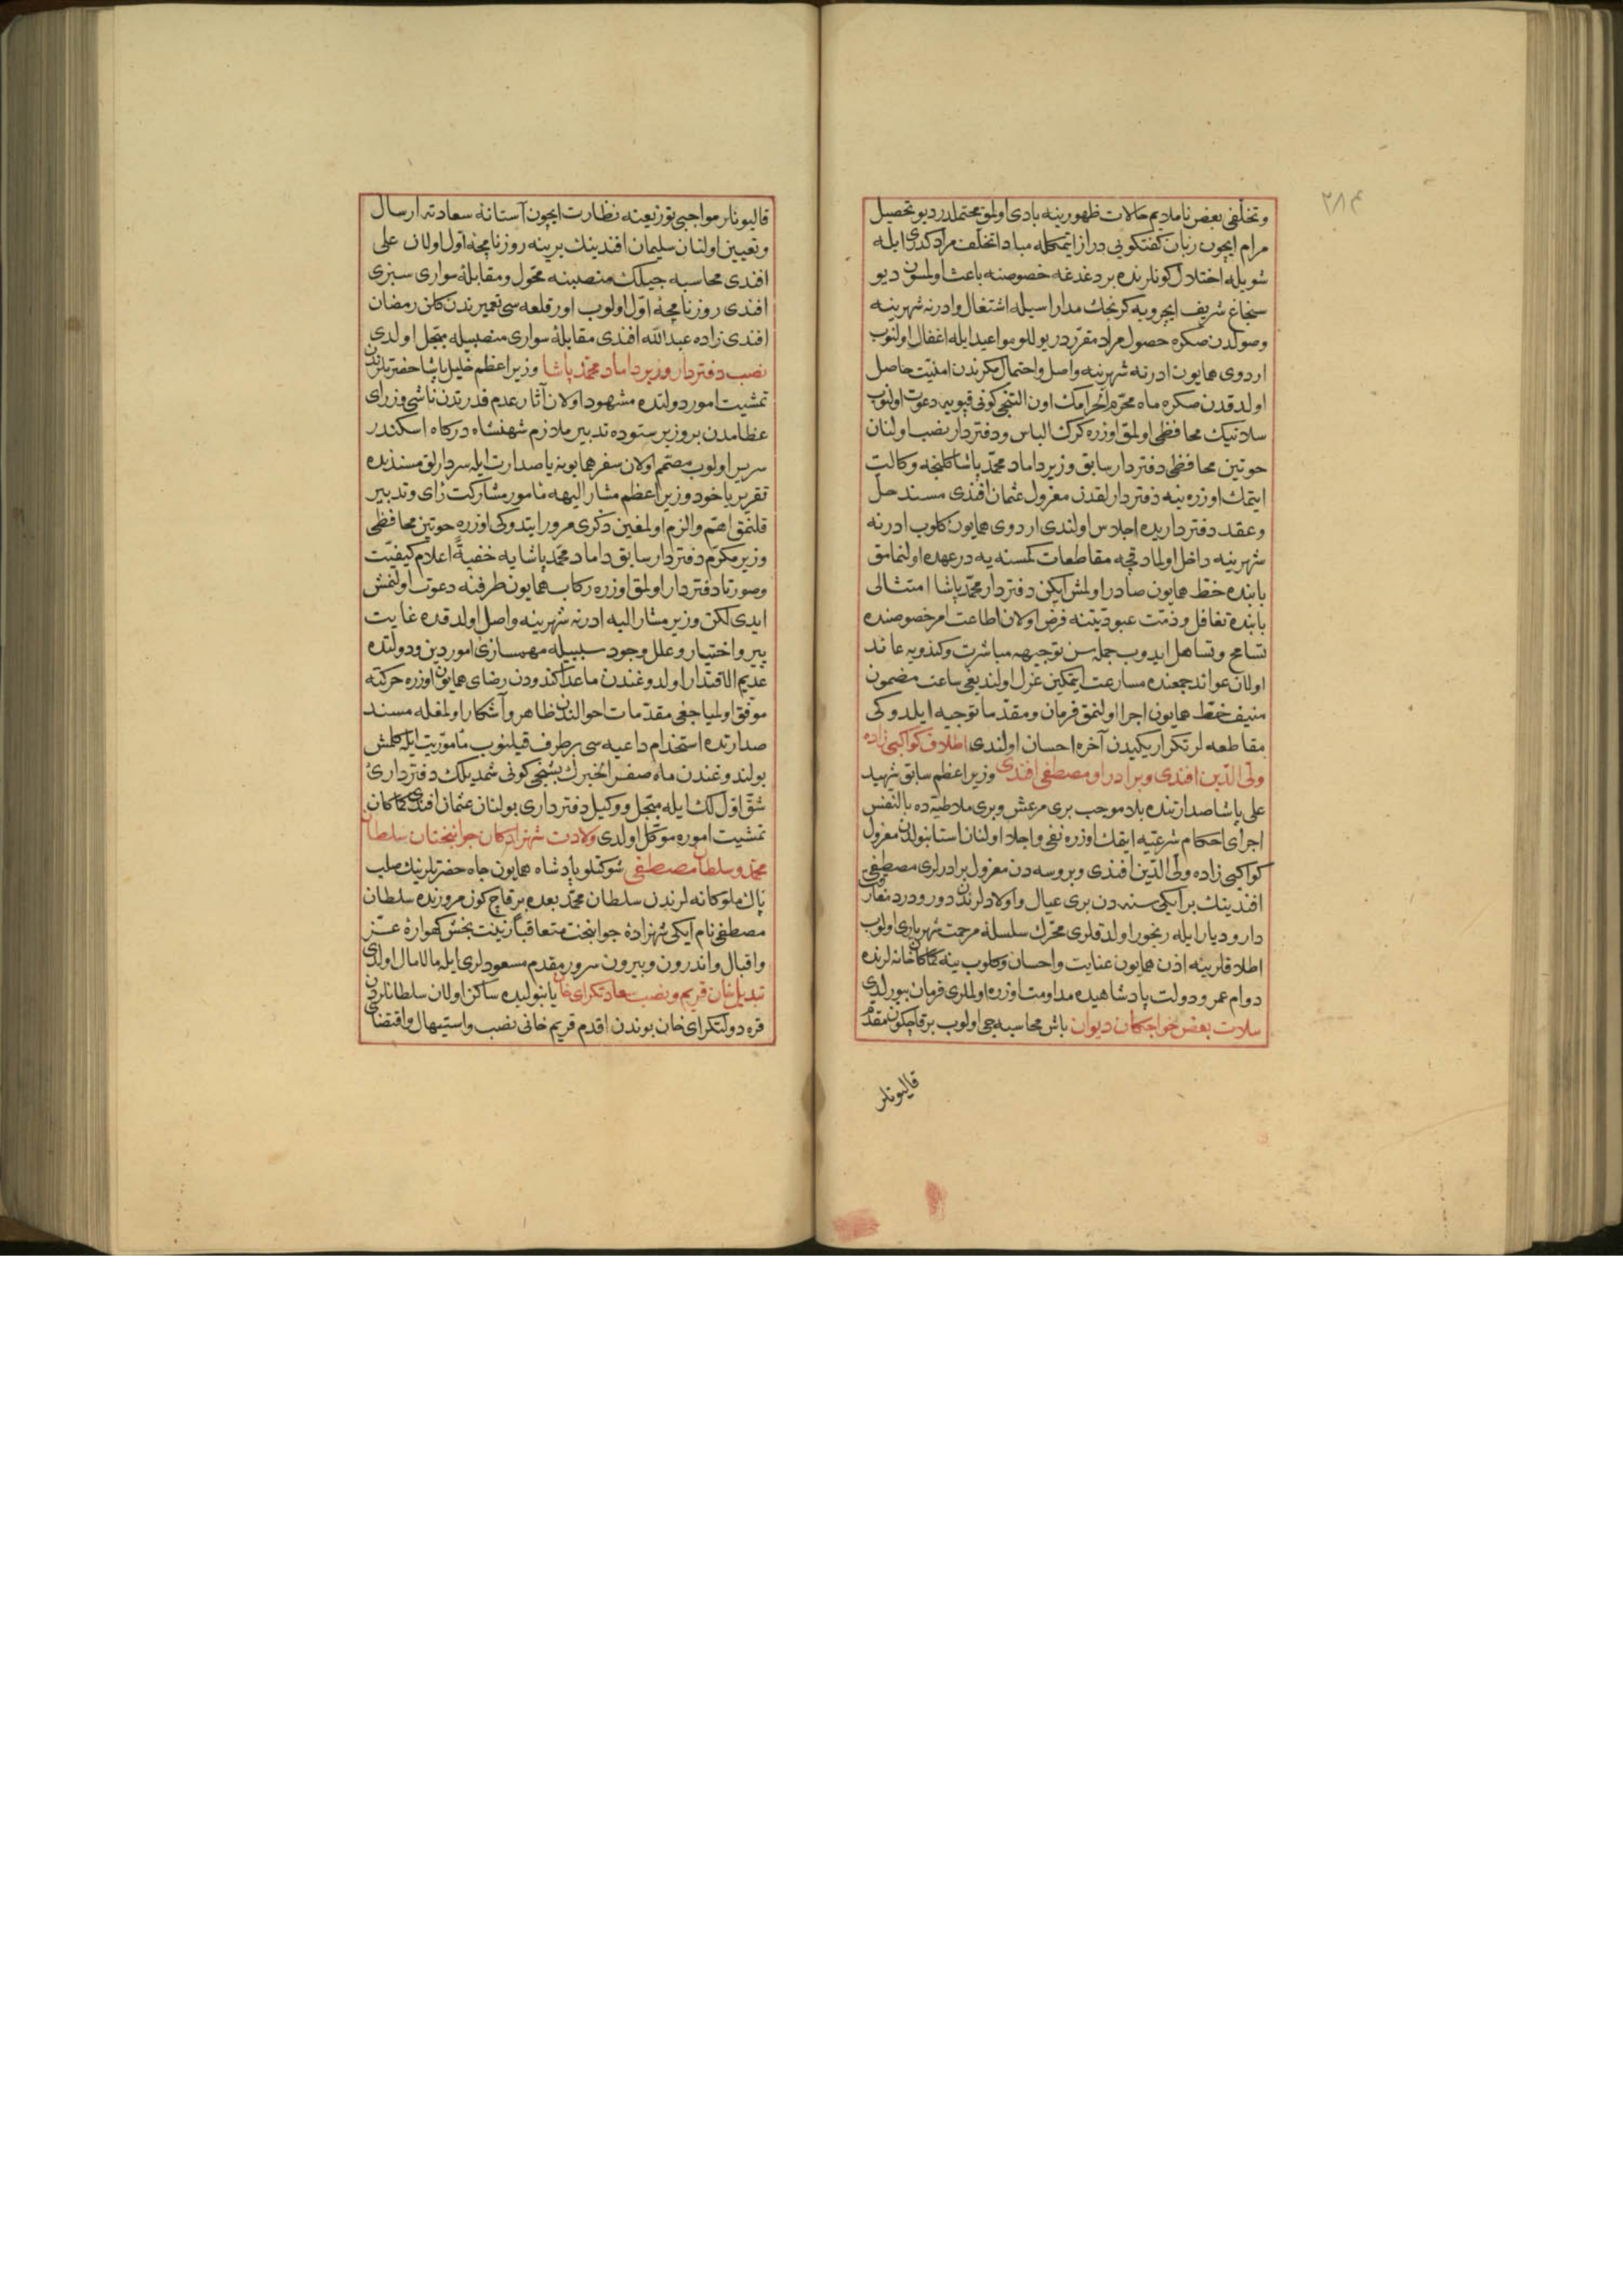 ٢٨٤
وتخلفى بعض ناملايم حالات ظهورينه بادى اولمق محتملدر ديو تحصيل
مرام ايچون زبان كفتكويى دراز ايتمكله مبادا تخلف مراد كدى ايله
شويله اختلال كونلرنده بر دغدغه خصوصنه باعث اولمسون ديو
سنجاغ شريف ايچرويه كرنجك مدارا سيله اشتغال وادرنه شهرينه
وصولدن صكره حصول مراد مقرردر يوللو مواعيد ايله اغفال اولنوب
اردوى همايون ادرنه شهرينه واصل واحتمال مكرندن امنيت حاصل
اولدقدن صكره ماه محرم الحرامك اون التنجى كونى قپويه دعوت اولنوب
سلانيك محافظى اولمق اوزره كرك الباس ودفتردار نصب اولنان
حوتين محافظى دفتردار سابق وزير داماد محمد پاشا كلنجه وكالت
ايتمك اوزره ينه دفتردارلقدن معزول عثمان افندى مسند حل
وعقد دفترداريده اجلاس اولندى اردوى همايون كلوب ادرنه
شهرينه داخل اولمادقچه مقاطعات كمسنه يه در عهده اولنمامق
بابنده خط همايون صادر اولمش ايكن دفتردار محمد پاشا امتثالى
بابنده تغافل وذمت عبوديتنه فرض اولان اطاعت امر خصوصنده
تسامح وتساهل ايدوب جمله سن توجيهه مباشرت وكندويه عائد
اولان عوائد جمعنده مسارعت ايتمكين عزل اولنديغى ساعت مضمون
منيف خط همايون اجرا اولنمق فرمان ومقدما توجيه ايلدوكى
مقاطعه لر تكرار يكيدن آخره احسان اولندى اطلاق كواكبى زاده
ولى الدين افندى وبرادر او مصطفى افندى وزير اعظم سابق شهيد
على پاشا صدارتنده بلا موجب برى مرعش وبرى ملاطيه ده بالنفس
اجراى احكام شرعيه ايتمك اوزره نفى واجلا اولنان استانبولدن معزول
كواكبى زاده ولى الدين افندى وبروسه دن معزول برادرلرى مصطفى
افندينك بر ايكى سنه دن برى عيال واولادلرندن دور ودرد مفارقت
دار وديار ايله رنجور اولدقلرى محرك سلسلهٔ مرحمت شهريارى اولوب
اطلاقلرينه اذن همايون عنايت واحسان وكلوب ينه كماكان خانه لرنده
دوام عمر ودولت پادشاهيده مداومت اوزره اولملرى فرمان بيورلدى
سلات بعض خواجكان ديوان باش محاسبه جى اولوب بر قاچ كون مقدم
قاليونلر
قاليونلر مواجبى توزيعنه نظارت ايچون آستانهٔ سعادته ارسال
وتعيين اولنان سليمان افندينك يرينه روزنامچهٔ اول اولان على
افندى محاسبه جيلك منصبنه محول ومقابلهٔ سوارى سبزى
افندى روزنامچهٔ اول اولوب اور قلعه سى تعميرندن كلن رمضان
افندى زاده عبد الله افندى مقابلهٔ سوارى منصبيله مبجل اولدى
نصب دفتردار وزير داماد محمد پاشا وزير اعظم خليل پاشا حضرتلرندن
تمشيت امور دولتده مشهود اولان آثار عدم قدرتدن ناشى وزراى
عظامدن بر وزير ستوده تدبير ملازم شهنشاه دركاه اسكندر
سرير اولوب مصمم اولان سفر همايونه يا صدارت ايله سردارلق مسندده
تقرير ياخود وزير اعظم مشار اليهه مأمور مشاركت راى وتدبير
قلنمق اهم والزم اولمغين ذكرى مرور ايتدوكى اوزره حوتين محافظى
وزير مكرم دفتردار سابق داماد محمد پاشايه خفيةً اعلام كيفيت
وصورتا دفتردار اولمق اوزره ركاب همايون طرفنه دعوت اولنمش
ايدى لكن وزير مشار اليه ادرنه شهرينه واصل اولدقده غايت
پير واختيار وعلل وجود سببيله مهمسازئ امور دين ودولتده
عديم الاقتدار اولدوغندن ماعدا كندودن رضاى همايون اوزره حركته
موفق اولميا جغى مقدمات احوالندن ظاهر وآشكار اولمغله مسند
صدارتده استخدام داعيه سى بر طرف قيلنوب مأموريت ايله كلمش
بولندوغندن ماه صفر الخيرك بشنجى كونى شمديلك دفتردارئ
شق اوللك ايله مبجل ووكيل دفتردارى بولنان عثمان افندى كماكان
تمشيت اموره موكل اولدى ولادت شهزادكان جوانبختان سلطان
محمد وسلطان مصطفى شوكتلو پادشاه همايون جاه حضرتلرينك صلب
پاك ملوكانه لرندن سلطان محمد بعده بر قاچ كون مرورنده سلطان
مصطفى نام ايكى شهزادهٔ جوانبخت متعاقبا زينت بخش كهوارهٔ عز
واقبال واندرون وبيرون سرور مقدم مسعودلرى ايله مالامال اولدى
تبديل خان قريم ونصب سعادتكراى خان يانبوليده ساكن اولان سلطانلردن
قره دولتكراى خان بوندن اقدم قريم خانى نصب واستيهال واقتضاى